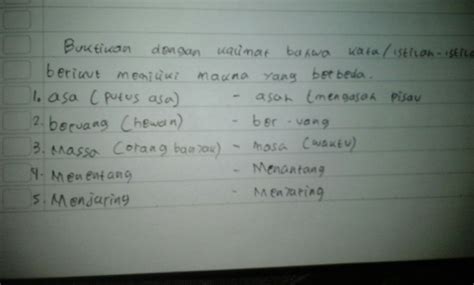 Buktikan dengan kalimat bahwa kata/istilah-istila
berikut memiliki makna yang berbeda.
1. asa (putus asa) - asah (mengasah pisau
2. beruang (hewan) - ber-uang
3. Massa (orang banyak) - masa (waktu)
4. Menentang - Menantang
5. Menjaring - Menjaring